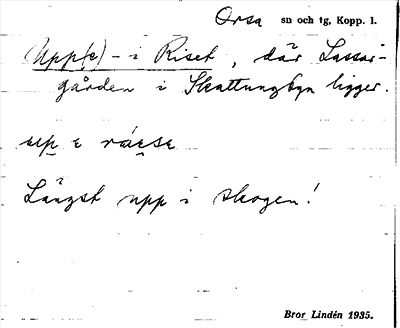 Orsa sn och tg, Kopp. l.
(Upp(e) - i Riset, där Lassar-
gården i Skattungbyn ligger.
up ε
Längst upp i skogen!
Bror Lindén 1935.